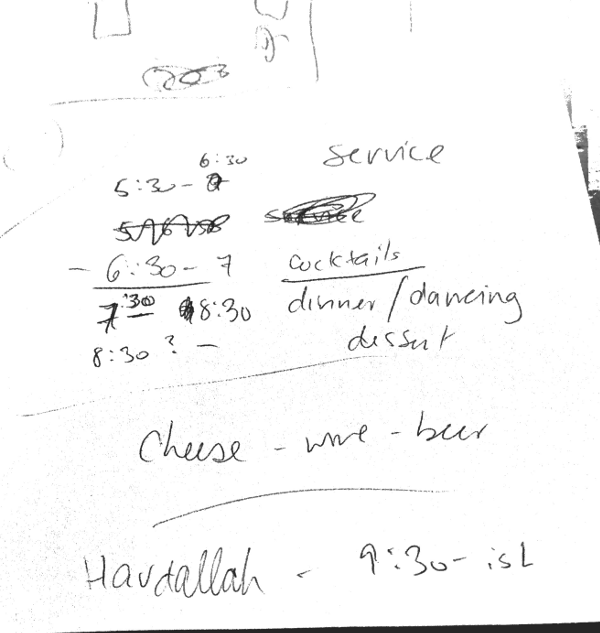 5:30 - 6:30 service
- 6:30 - 7 cocktails
7:30 8:30 dinner/dancing
8:30 ? - dessert
Cheese - wine - beer
Havdallah - 9:30-ish